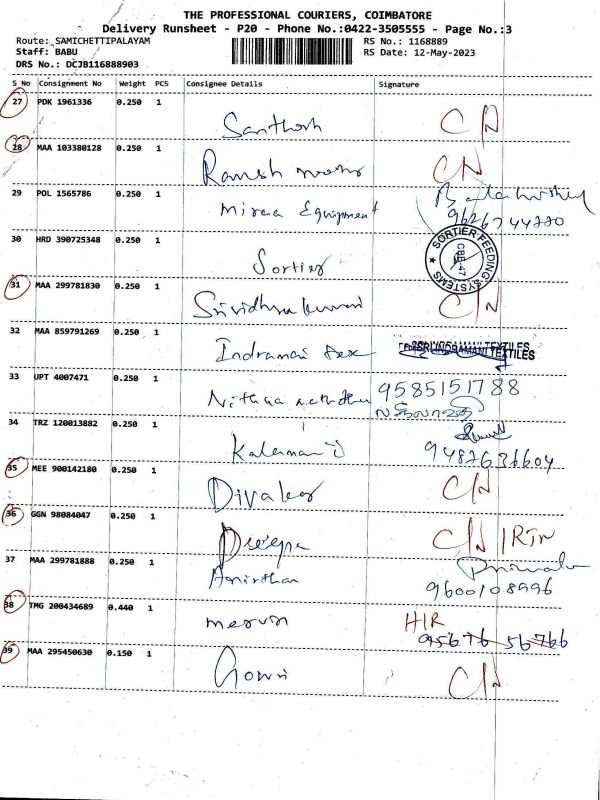 THE PROFESSIONAL COURIERS, COIMBATORE
Delivery Runsheet - P20 - Phone No.:0422-3505555 - Page No.:3
Route: SAMICHETTIPALAYAM RS No.: 1168889
Staff: BABU RS Date: 12-May-2023
DRS No.: DCJB116888903
S No Consignment No Weight PCS Consignee Details Signature
27 PDK 1961336 0.250 1
Santhosh C/N
28 MAA 103380128 0.250 1 C/N
Ramesh
29 POL 1565786 0.250 1
Mirra Equipment 9626744220
30 HRD 390725348 0.250 1
Sortier SORTIER FEEDING SYSTEMS CBE-47
31 MAA 299781830 0.250 1
Srividhya kumari C/N
32 MAA 859791269 0.250 1
Indramani Tex SRI INDRAMANI TEXTILES
33 UPT 4007471 0.250 1 9585151788
Nithya
34 TRZ 120013882 0.250 1
Kalaimani 9487636604
35 MEE 900142180 0.250 1
Divakar C/N
36 GGN 98084047 0.250 1
Deepa C/N / RTN
37 MAA 299781888 0.250 1
Amirthan 9600108996
38 TMG 200434689 0.440 1 H/R
mervin
39 MAA 295450630 0.150 1
Gowri C/N